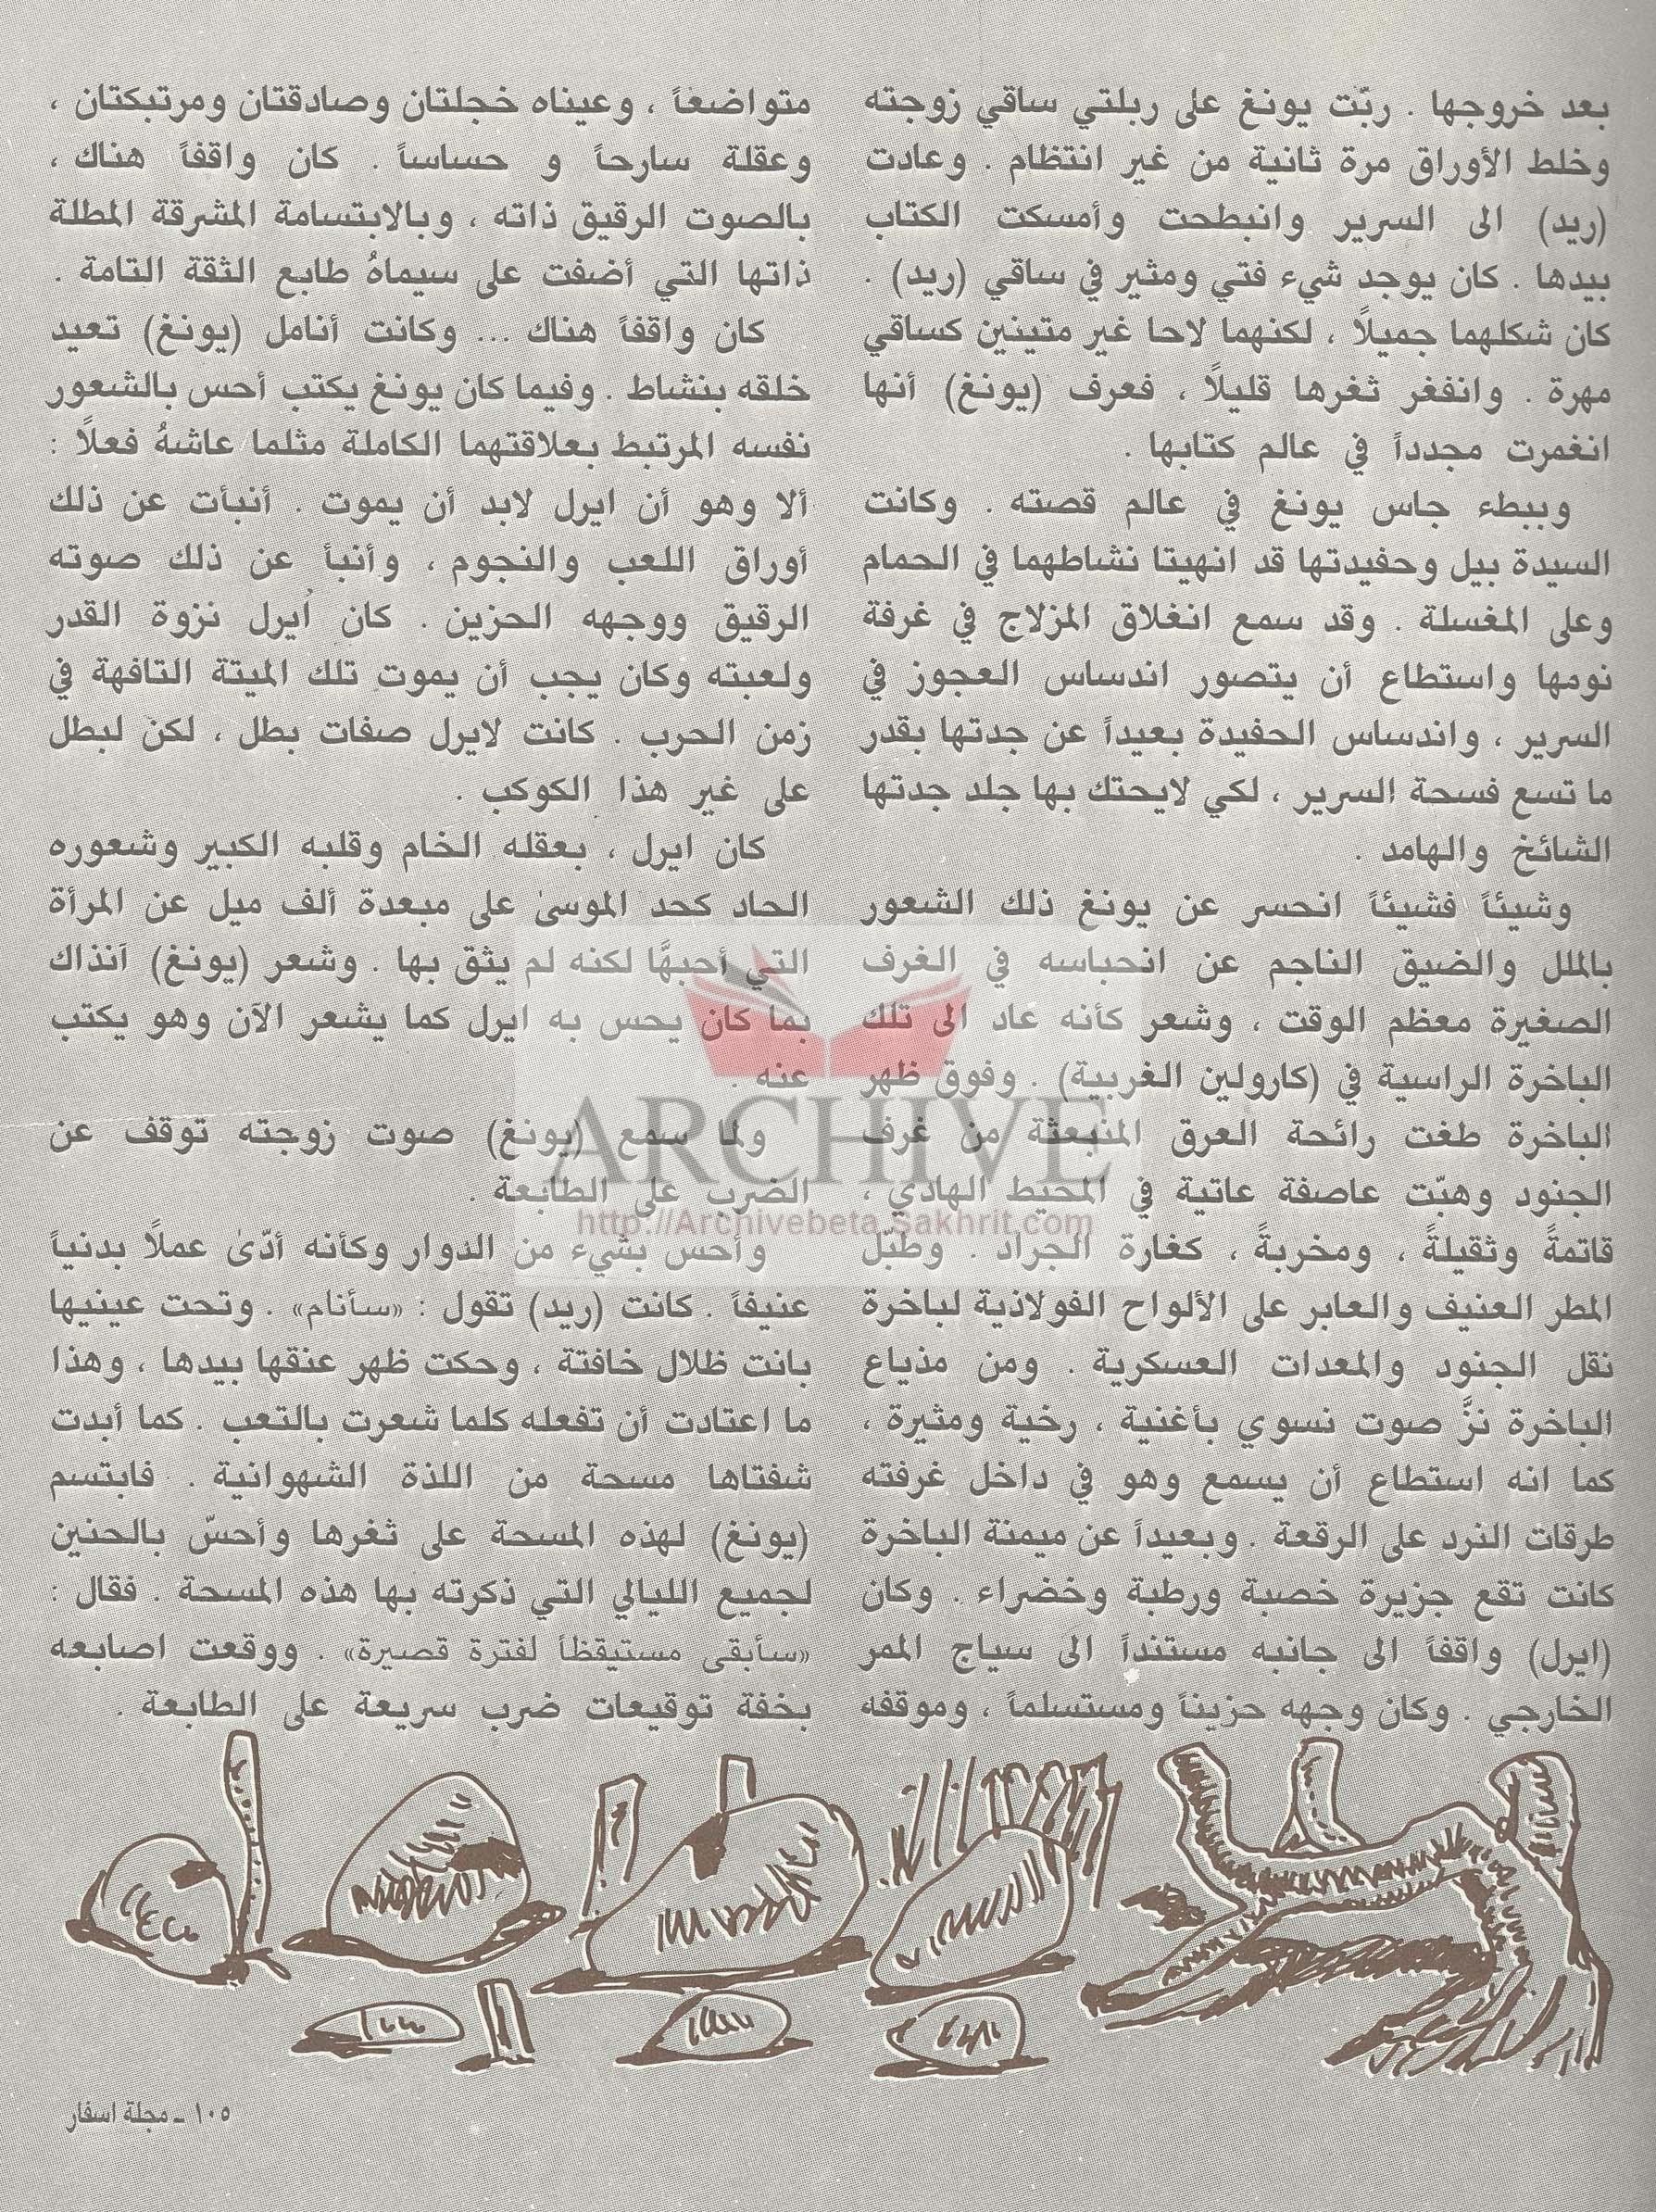 بعد خروجها . ربّت يونغ على ربلتي ساقي زوجته
وخلط الأوراق مرة ثانية من غير انتظام . وعادت
(ريد) الى السرير وانبطحت وأمسكت الكتاب
بيدها . كان يوجد شيء فتي ومثير في ساقي (ريد) .
كان شكلهما جميلاً ، لكنهما لاحا غير متينين كساقي
مهرة . وانفغر ثغرها قليلاً ، فعرف (يونغ) أنها
انغمرت مجدداً في عالم كتابها .
وببطء جاس يونغ في عالم قصته . وكانت
السيدة بيل وحفيدتها قد انهيتا نشاطهما في الحمام
وعلى المغسلة . وقد سمع انغلاق المزلاج في غرفة
نومها واستطاع أن يتصور اندساس العجوز في
السرير ، واندساس الحفيدة بعيداً عن جدتها بقدر
ما تسع فسحة السرير ، لكي لايحتك بها جلد جدتها
الشائخ والهامد .
وشيئاً فشيئاً انحسر عن يونغ ذلك الشعور
بالملل والضيق الناجم عن انحباسه في الغرف
الصغيرة معظم الوقت ، وشعر كأنه عاد الى تلك
الباخرة الراسية في (كارولين الغربية) . وفوق ظهر
الباخرة طغت رائحة العرق المنبعثة من غرف
الجنود وهبّت عاصفة عاتية في المحيط الهادي ،
قاتمةً وثقيلةً ، ومخربةً ، كغارة الجراد . وطبّل
المطر العنيف والعابر على الألواح الفولاذية لباخرة
نقل الجنود والمعدات العسكرية . ومن مذياع
الباخرة نزَّ صوت نسوي بأغنية ، رخية ومثيرة ،
كما انه استطاع أن يسمع وهو في داخل غرفته
طرقات النرد على الرقعة . وبعيداً عن ميمنة الباخرة
كانت تقع جزيرة خصبة ورطبة وخضراء . وكان
(ايرل) واقفاً الى جانبه مستنداً الى سياج الممر
الخارجي . وكان وجهه حزيناً ومستسلماً ، وموقفه
متواضعاً ، وعيناه خجلتان وصادقتان ومرتبكتان ،
وعقلة سارحاً و حساساً . كان واقفاً هناك ،
بالصوت الرقيق ذاته ، وبالابتسامة المشرقة المطلة
ذاتها التي أضفت على سيماهُ طابع الثقة التامة .
كان واقفاً هناك ... وكانت أنامل (يونغ) تعيد
خلقه بنشاط . وفيما كان يونغ يكتب أحس بالشعور
نفسه المرتبط بعلاقتهما الكاملة مثلما عاشهُ فعلاً :
ألا وهو أن ايرل لابد أن يموت . أنبأت عن ذلك
أوراق اللعب والنجوم ، وأنبأ عن ذلك صوته
الرقيق ووجهه الحزين . كان أيرل نزوة القدر
ولعبته وكان يجب أن يموت تلك الميتة التافهة في
زمن الحرب . كانت لايرل صفات بطل ، لكن لبطل
على غير هذا الكوكب .
كان ايرل ، بعقله الخام وقلبه الكبير وشعوره
الحاد كحد الموسىٰ على مبعدة ألف ميل عن المرأة
التي أحبهَّا لكنه لم يثق بها . وشعر (يونغ) آنذاك
بما كان يحس به ايرل كما يشعر الآن وهو يكتب
عنه .
ولما سمع (يونغ) صوت زوجته توقف عن
الضرب على الطابعة .
وأحس بشيء من الدوار وكأنه أدّىٰ عملاً بدنياً
عنيفاً . كانت (ريد) تقول : «سأنام» . وتحت عينيها
بانت ظلال خافتة ، وحكت ظهر عنقها بيدها ، وهذا
ما اعتادت أن تفعله كلما شعرت بالتعب . كما أبدت
شفتاها مسحة من اللذة الشهوانية . فابتسم
(يونغ) لهذه المسحة على ثغرها وأحسّ بالحنين
لجميع الليالي التي ذكرته بها هذه المسحة . فقال :
«سأبقى مستيقظاً لفترة قصيرة» . ووقعت اصابعه
بخفة توقيعات ضرب سريعة على الطابعة .
ARCHIVE
http://Archivebeta.Sakhrit.com
١٠٥ - مجلة اسفار